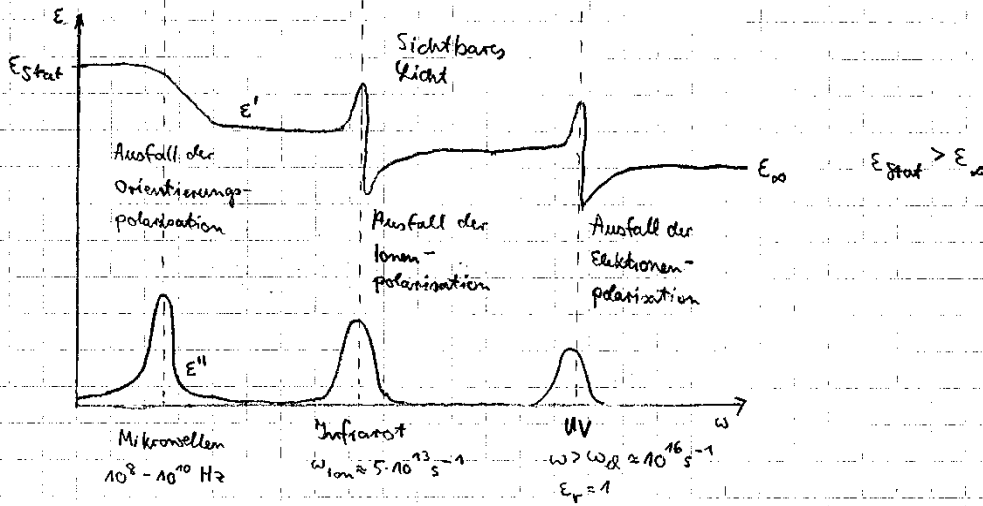 ε
Sichtbares
Licht
ε_Stat
ε'
Ausfall der
Orientierungs-
polarisation
ε_∞
ε_Stat > ε_∞
Ausfall der
Ionen-
polarisation
Ausfall der
Elektronen-
polarisation
ε''
ω
Mikrowellen
10⁸ - 10¹⁰ Hz
Infrarot
ω_Ion ≈ 5·10¹³ s⁻¹
UV
ω > ω_el ≈ 10¹⁶ s⁻¹
ε_r = 1